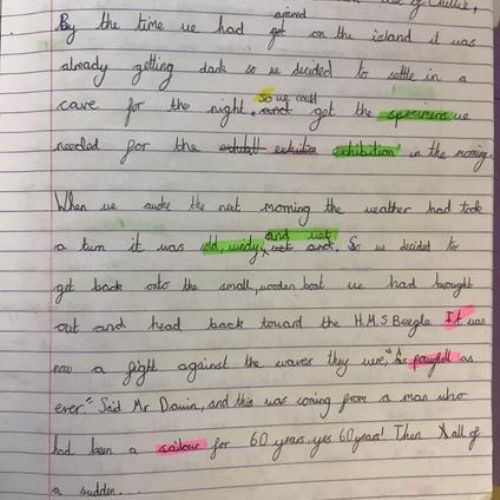 of Chillie,
By the time we had arrived get on the island it was
already getting dark so we decided to settle in a
cave for the night. so we could and get the specimens we
needed for the exhibatt exhibitea exhibition in the morning
When we awoke the next morning the weather had took
a turn it was cold, windy, and wet wet and. So we decided to
get back onto the small, wooden boat we had brought
out and head back toward the H.M.S Beegle It was
now a fight against the waves they were, "As powfull as
ever." Said Mr Drawin, and this was coming from a man who
had been a sailour for 60 years, yes 60 years! Then all of
a sudden...